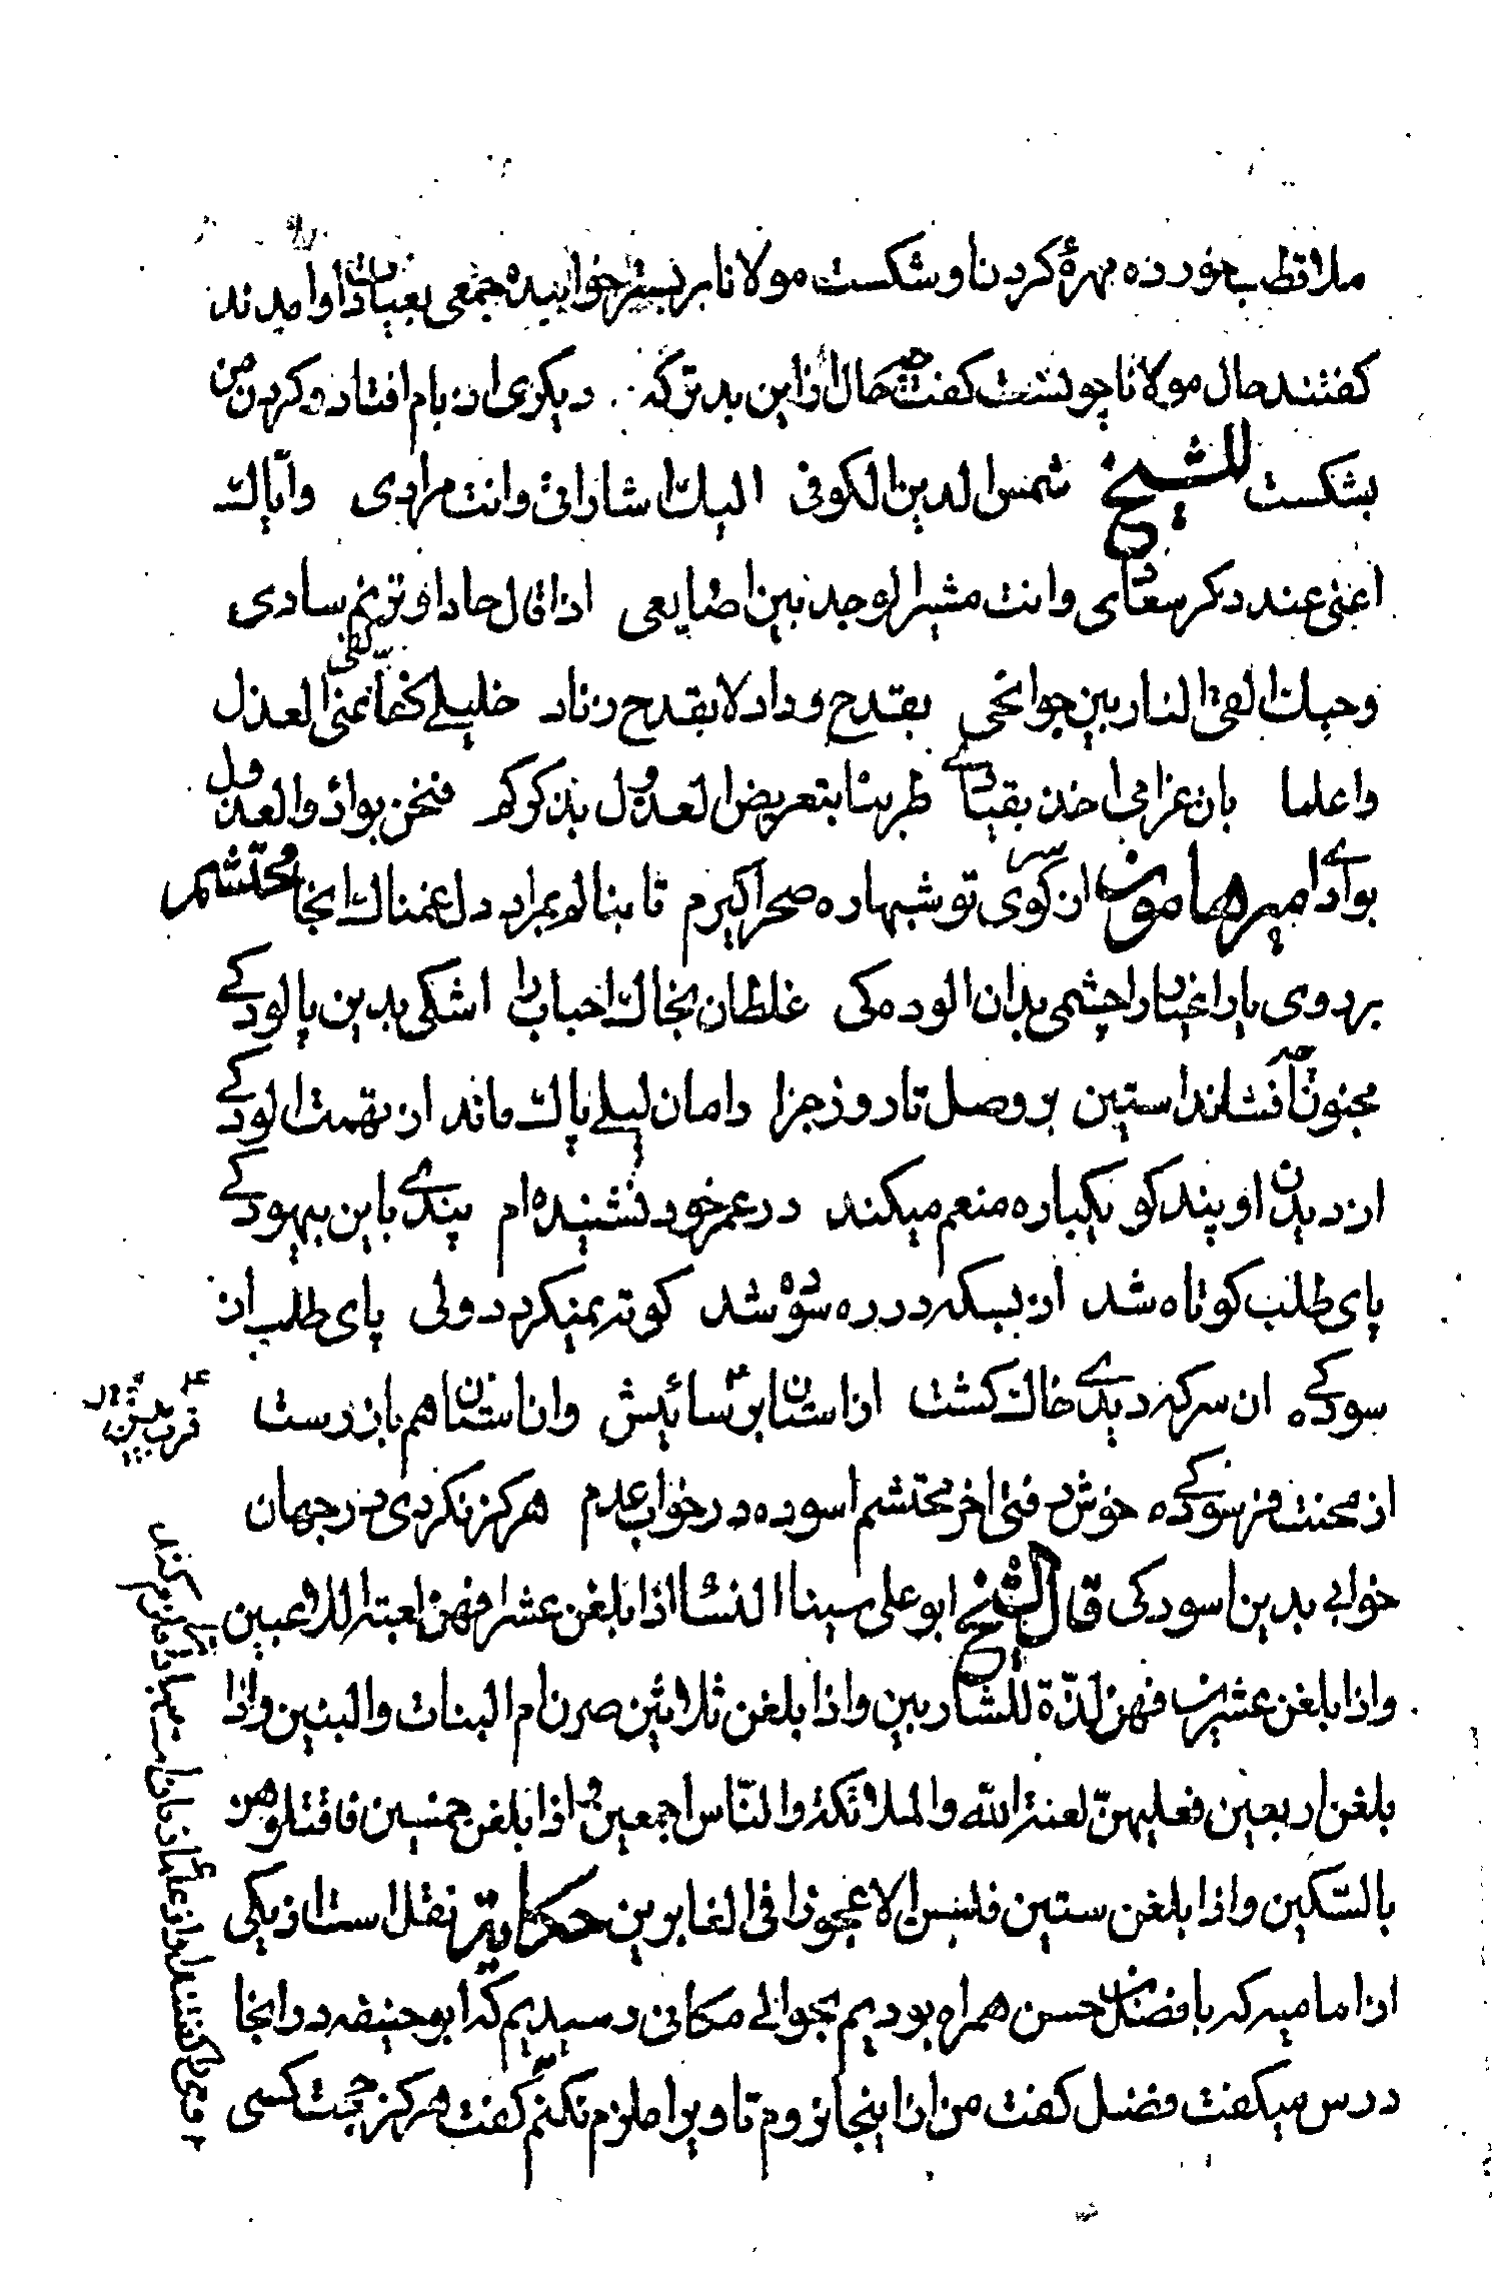 ملا قطب خورده مهرهٔ کردن او شکست مولانا بر بستر خوابیده جمعی بعیادت او امدند
کفتند حال مولانا چونست کفت چه حال از این بدتر که دیکری از بام افتاد و کردن من
بشکست للشیخ شمس الدین الکوفی الیك اشاراتی وانت مرادی وایاك
اعنی عند ذکر سعاد وانت مثیر الوجد بین اضالعی اذا قال حاد او ترنم سادی
وحبك القی النار بین جوانحی بقدح وداد لا بقدح زناد خلیلی کفا عنی العذل
واعلما بان غرامی اخذ بقیادی طربنا بتعریض العذول بذکرکم فنحن بواد والعذول
بوادی امیر همایون از سر کوی تو شبها ره صحرا کیرم تا بنالم بمراد دل غمناك انجا محتشم
بر روی یار اغیار را چشمی بدان الوده کی غلطان بخاك احباب را اشکی بدین پالودکی
مجنون چه افشاند استین بر وصل تا روز جزا دامان لیلی پاك ماند از تهمت الودکی
از دیدن او پند کو یکباره منعم میکند در عمر خود نشنیده ام پندی باین بیهودکی
پای طلب کوتاه شد از بسکه در ره سوده شد کوته نمیکردد ولی پای طلب از
سودکی ان سر که دیدی خاك کشت از استان بر سائیش وان استان هم باز رست
از محنت فرسودکی خوش رفتی اخر محتشم اسوده در خواب عدم هرکز نکردی در جهان
خوابی بدین اسودکی قال الشیخ ابو علی سینا النساء اذا بلغن عشرا فهن لعبة للاعبین
واذا بلغن عشرین فهن لذّة للشاربین واذا بلغن ثلاثین صرن ام البنات والبنین واذا
بلغن اربعین فعلیهنّ لعنة الله والملائکة والنّاس اجمعین واذا بلغن خمسین فاقتلوهن
بالسّکین واذا بلغن ستین فلیس الا عجوزا فی الغابرین حکایة نقل است از یکی
از امامیه که با فضال حسن همراه بودیم بحوالی مکانی رسیدیم که ابو حنیفه در انجا
درس میکفت فضل کفت من از اینجا نروم تا ویرا ملزم نکنم کفت هرکز حجت کسی